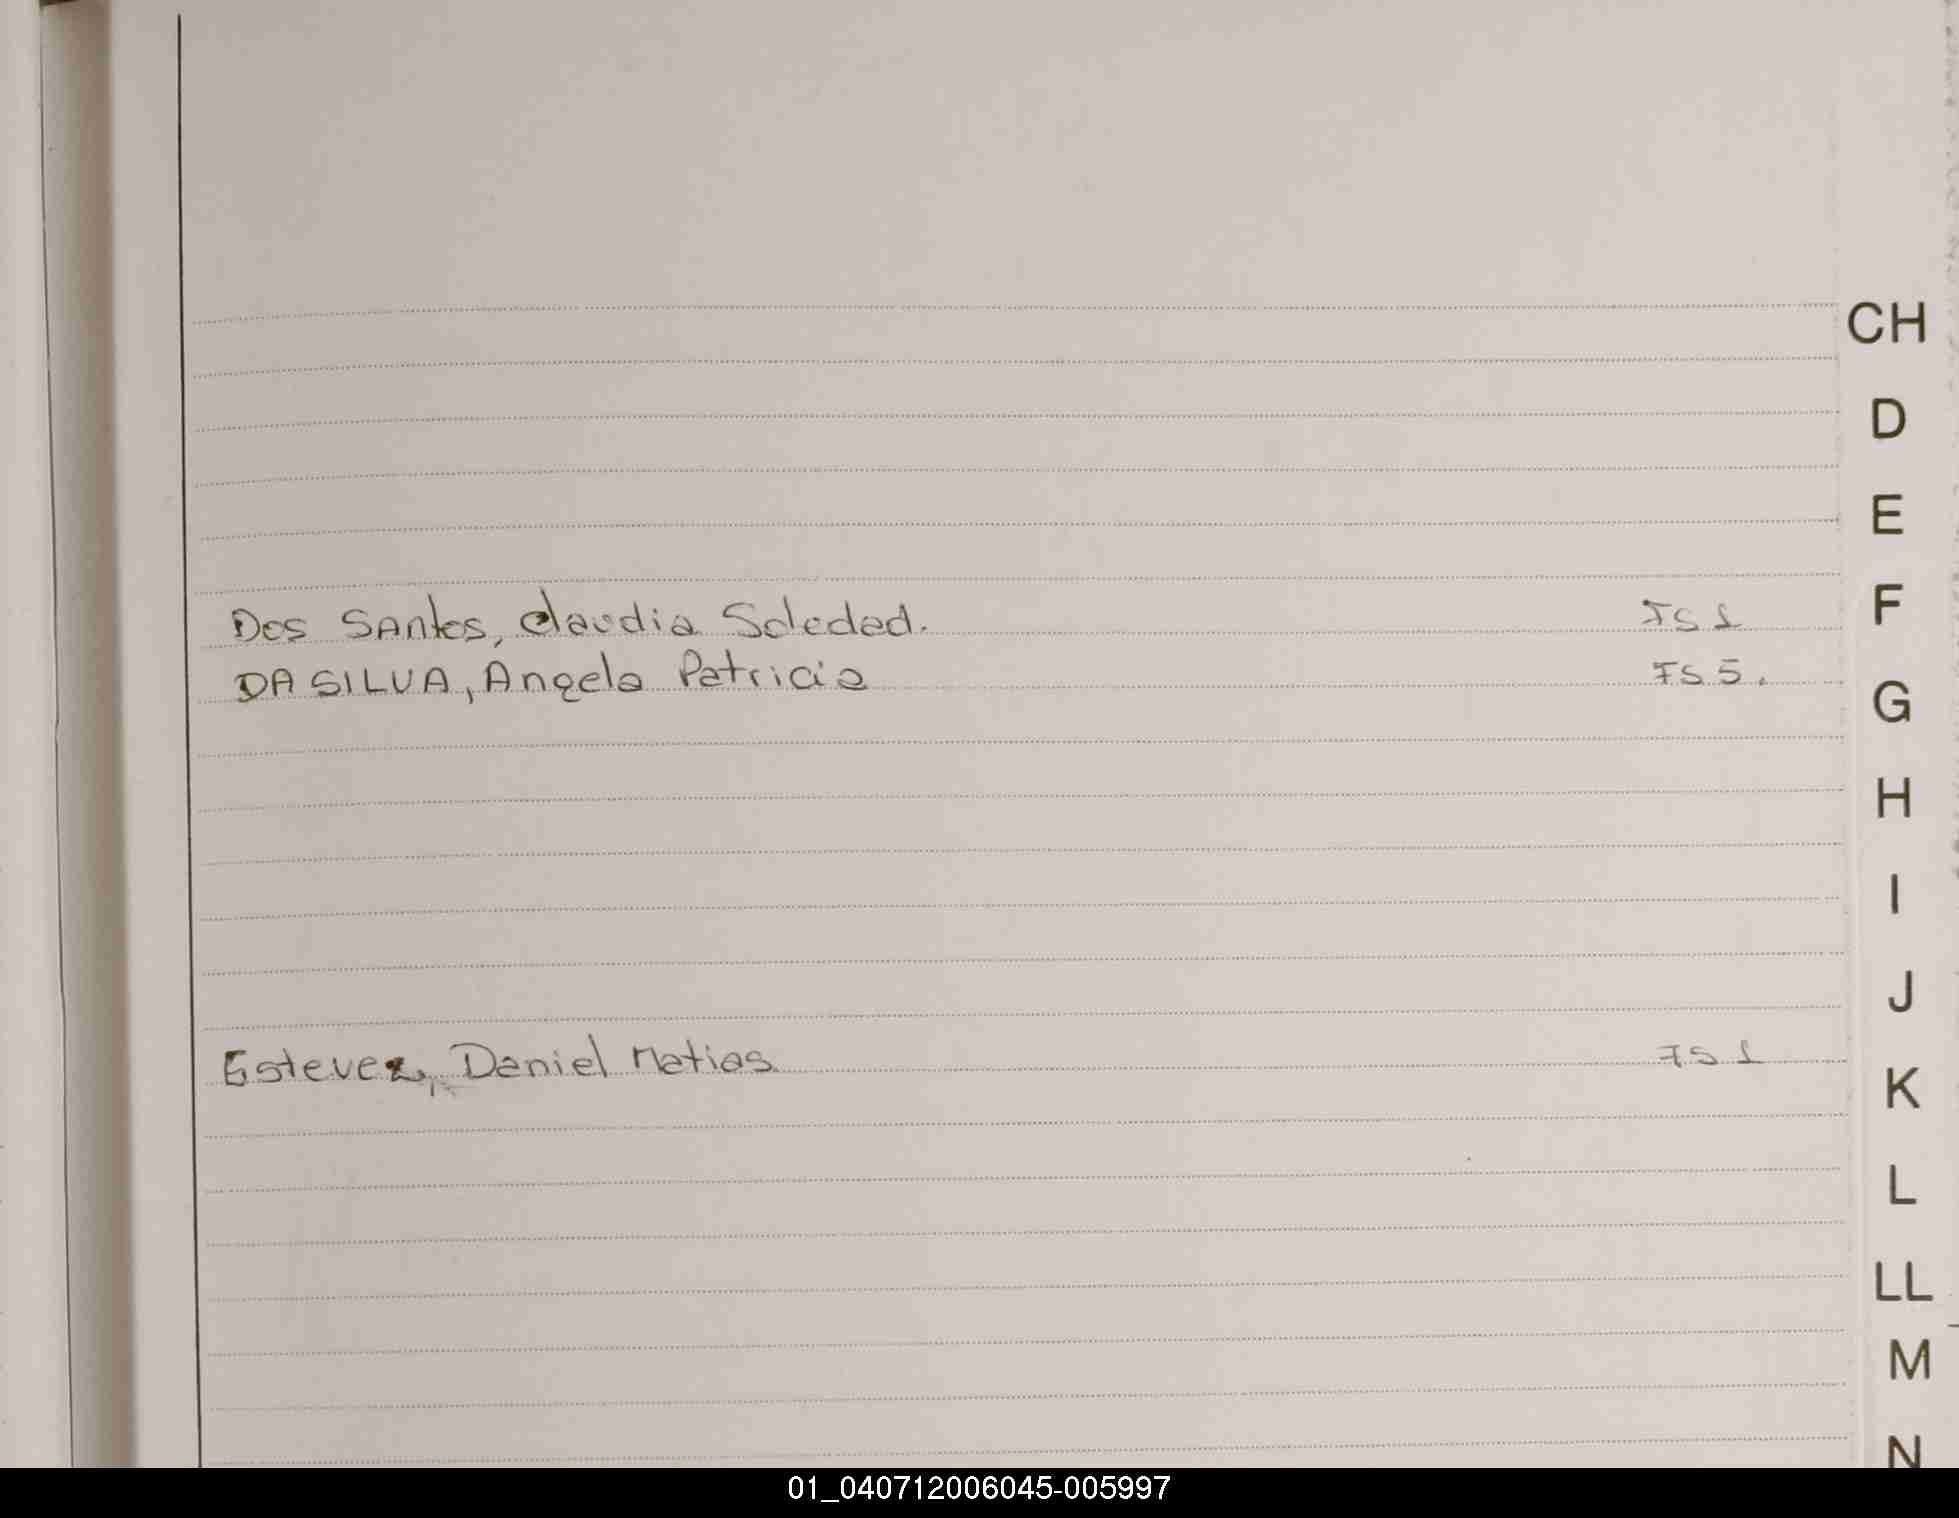 CH
D
E
Dos Santos, Claudia Soledad. FS 1
F
DA SILVA, Angela Patricia FS 5.
G
H
I
J
Estevez, Daniel Matias FS 1
K
L
LL
M
N
01_040712006045-005997